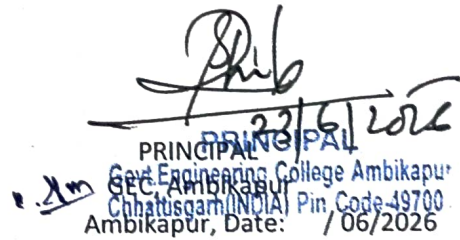 23/6/2026
PRINCIPAL
PRINCIPAL
Govt.Engineering College Ambikapur
GEC. Ambikapur
Chhattisgarh(INDIA) Pin Code-49700
Ambikapur, Date: / 06/2026